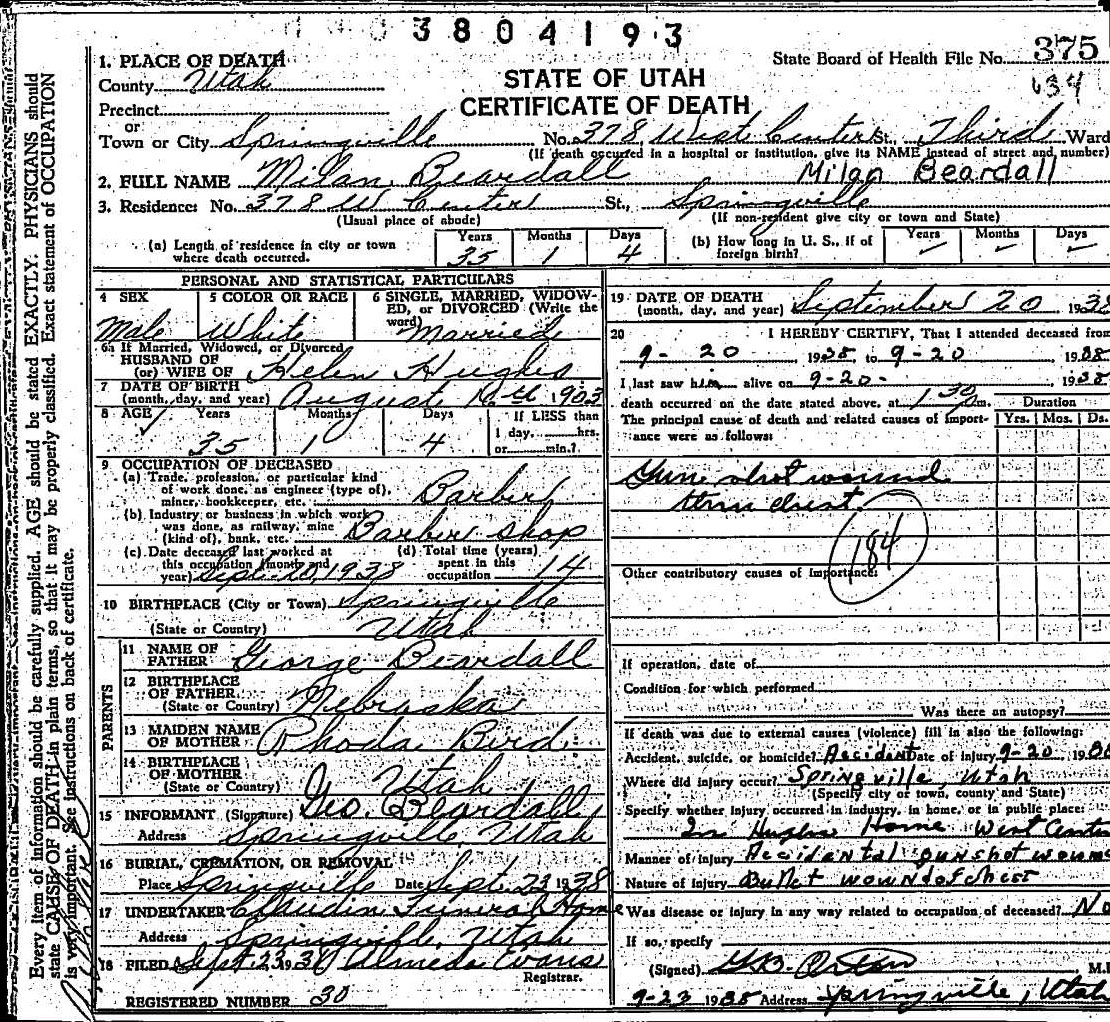 3804193
1. PLACE OF DEATH
State Board of Health File No. 375
County Utah
STATE OF UTAH
634
Precinct
CERTIFICATE OF DEATH
or
Town or City Springville No. 378 West Center St., Third Ward
(If death occurred in a hospital or institution, give its NAME instead of street and number)
2. FULL NAME Milan Beardall Milan Beardall
3. Residence: No. 378 W Center St., Springville
(Usual place of abode) (If non-resident give city or town and State)
(a) Length of residence in city or town where death occurred. Years 35 Months 1 Days 4 (b) How long in U. S., if of foreign birth? Years Months Days
PERSONAL AND STATISTICAL PARTICULARS
4 SEX 5 COLOR OR RACE 6 SINGLE, MARRIED, WIDOW-
ED, or DIVORCED (Write the
word)
Male White Married
6a If Married, Widowed, or Divorced
HUSBAND OF
(or) WIFE OF Helen Hughes
7 DATE OF BIRTH
(month, day, and year) August 16th 1903
8 AGE Years Months Days If LESS than
1 day, hrs.
35 1 4 or min.?
9 OCCUPATION OF DECEASED
(a) Trade, profession, or particular kind
of work done, as engineer (type of),
miner, bookkeeper, etc. Barber
(b) Industry or business in which work
was done, as railway, mine
(kind of), bank, etc. Barber shop
(c) Date deceased last worked at
this occupation (month and
year) Sept. 20, 1938
(d) Total time (years)
spent in this
occupation 14
10 BIRTHPLACE (City or Town) Springville
(State or Country) Utah
PARENTS
11 NAME OF
FATHER George Beardall
12 BIRTHPLACE
OF FATHER
(State or Country) Nebraska
13 MAIDEN NAME
OF MOTHER Rhoda Bird
14 BIRTHPLACE
OF MOTHER
(State or Country) Utah
15 INFORMANT (Signature) Geo. Beardall
Address Springville, Utah
16 BURIAL, CREMATION, OR REMOVAL
Place Springville Date Sept. 23 1938
17 UNDERTAKER Claudin Funeral Home
Address Springville, Utah
18 FILED Sept 23, 1938 Almeda Evans
Registrar.
REGISTERED NUMBER 30
19 DATE OF DEATH
(month, day, and year) September 20 1938
20 I HEREBY CERTIFY, That I attended deceased from
9-20 1938 to 9-20 1938
I last saw him alive on 9-20- 1938
death occurred on the date stated above, at 1 30 m. Duration
The principal cause of death and related causes of import-
ance were as follows: Yrs. Mos. Ds.
Gun shot wound
chest.
184
Other contributory causes of importance:
If operation, date of
Condition for which performed
Was there an autopsy?
If death was due to external causes (violence) fill in also the following:
Accident, suicide, or homicide? Accident Date of injury 9-20 1938
Where did injury occur? Springville, Utah
(Specify city or town, county and State)
Specify whether injury occurred in industry, in home, or in public place:
In Hughes Home West Center
Manner of injury Accidental gunshot wound
Nature of injury Bullet wound of chest
Was disease or injury in any way related to occupation of deceased? No
If so, specify
(Signed) G.B. Orton M.D
9-23 1938 Address Springville, Utah
Every item of information should be carefully supplied. AGE should be stated EXACTLY. PHYSICIANS should
state CAUSE OF DEATH in plain terms, so that it may be properly classified. Exact statement of OCCUPATION
is very important. See instructions on back of certificate.